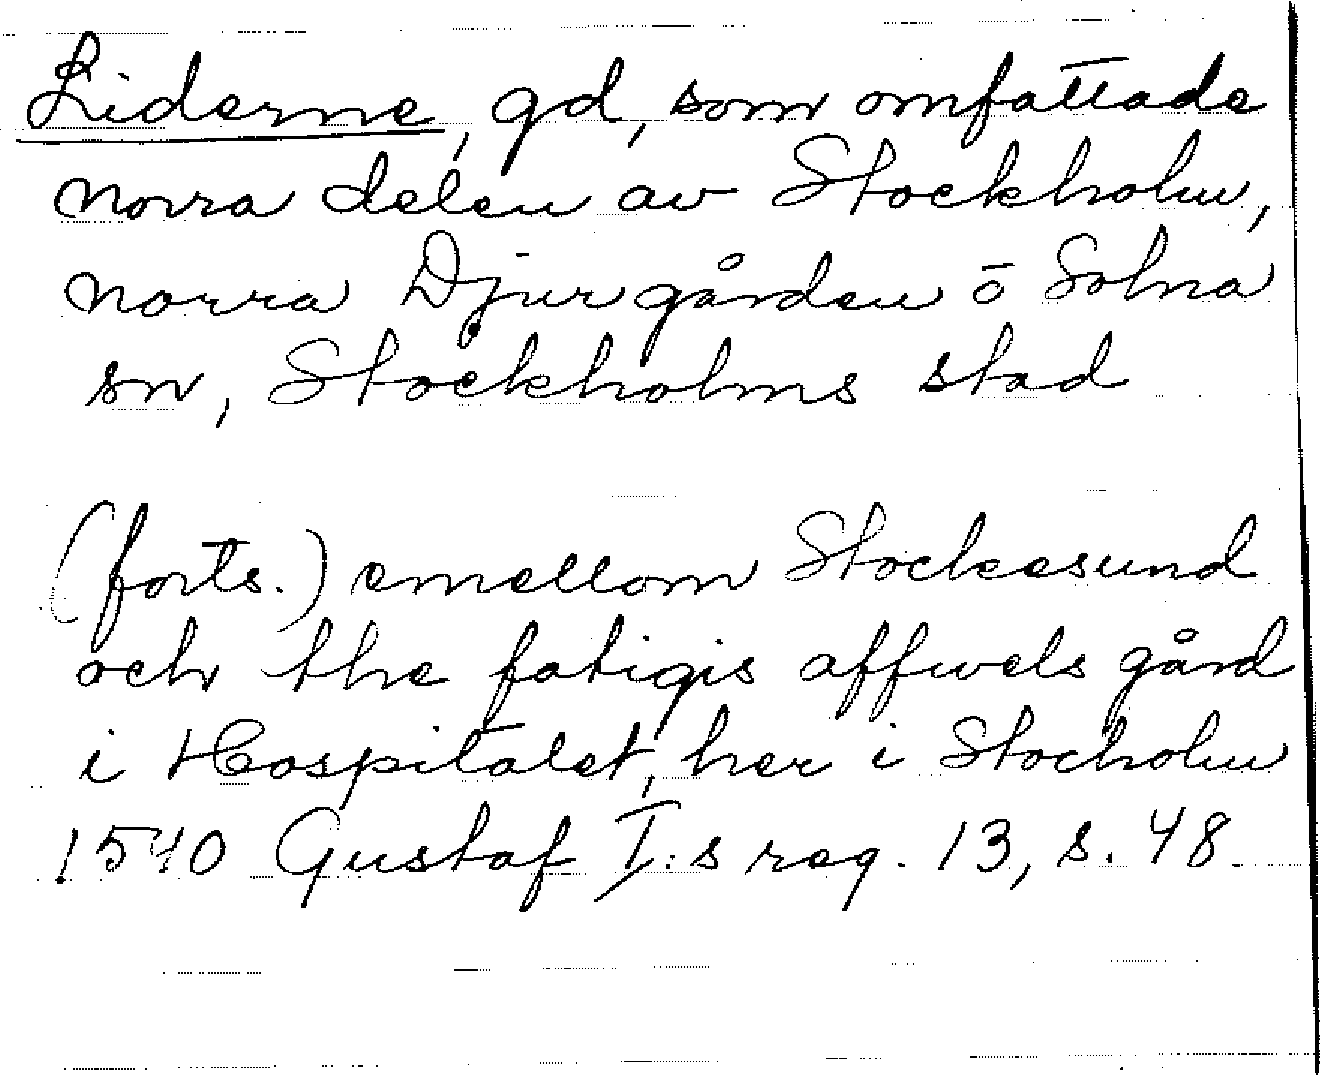 Liderne, gd, som omfattade
norra delen av Stockholm,
norra Djurgården o Solna
sn, Stockholms stad
(forts.) emellom Stockesund
och the fatigis affwels gård
i Hospitalet, her i Stocholm
1540 Gustaf I:s reg. 13, s. 48